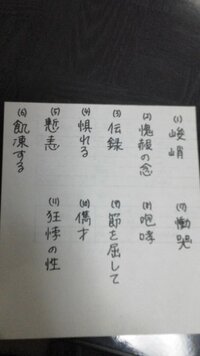 (1) 峻峭
(2) 愧赧の念
(3) 伝録
(4) 惧れる
(5) 慙恚
(6) 飢凍する
(7) 慟哭
(8) 咆哮
(9) 節を屈して
(10) 儁才
(11) 狂悖の性